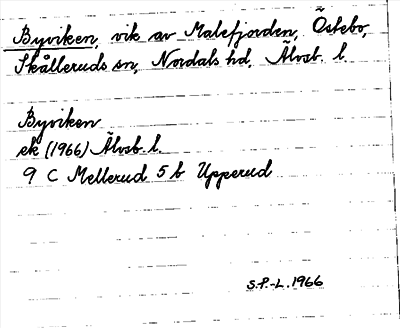 Byviken, vik av Malefjorden, Östebo,
Skålleruds sn, Nordals hd, Älvsb. l.
Byviken
ek (1966) Älvsb. l.
9 C Mellerud 5 b Upperud
S.P.-L. 1966